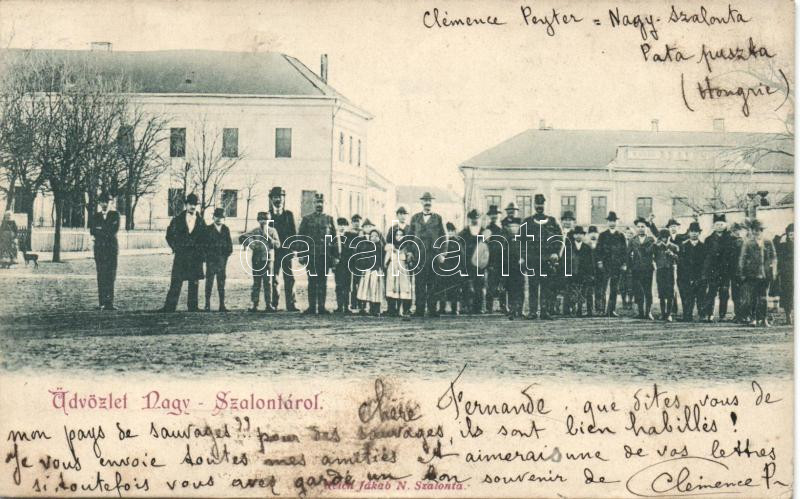 Clémence Peyter = Nagy-Szalonta
Pata puszta
(Hongrie)
Darabanth
Üdvözlet Nagy-Szalontáról.
Chère Fernande, que dites vous de
mon pays de sauvages?? pour des sauvages, ils sont bien habillés!
Je vous envoie toutes mes amitiés et aimerais une de vos lettres
si toutefois vous avez gardé un bon souvenir de Clémence P.
Reich Jakab N. Szalonta.